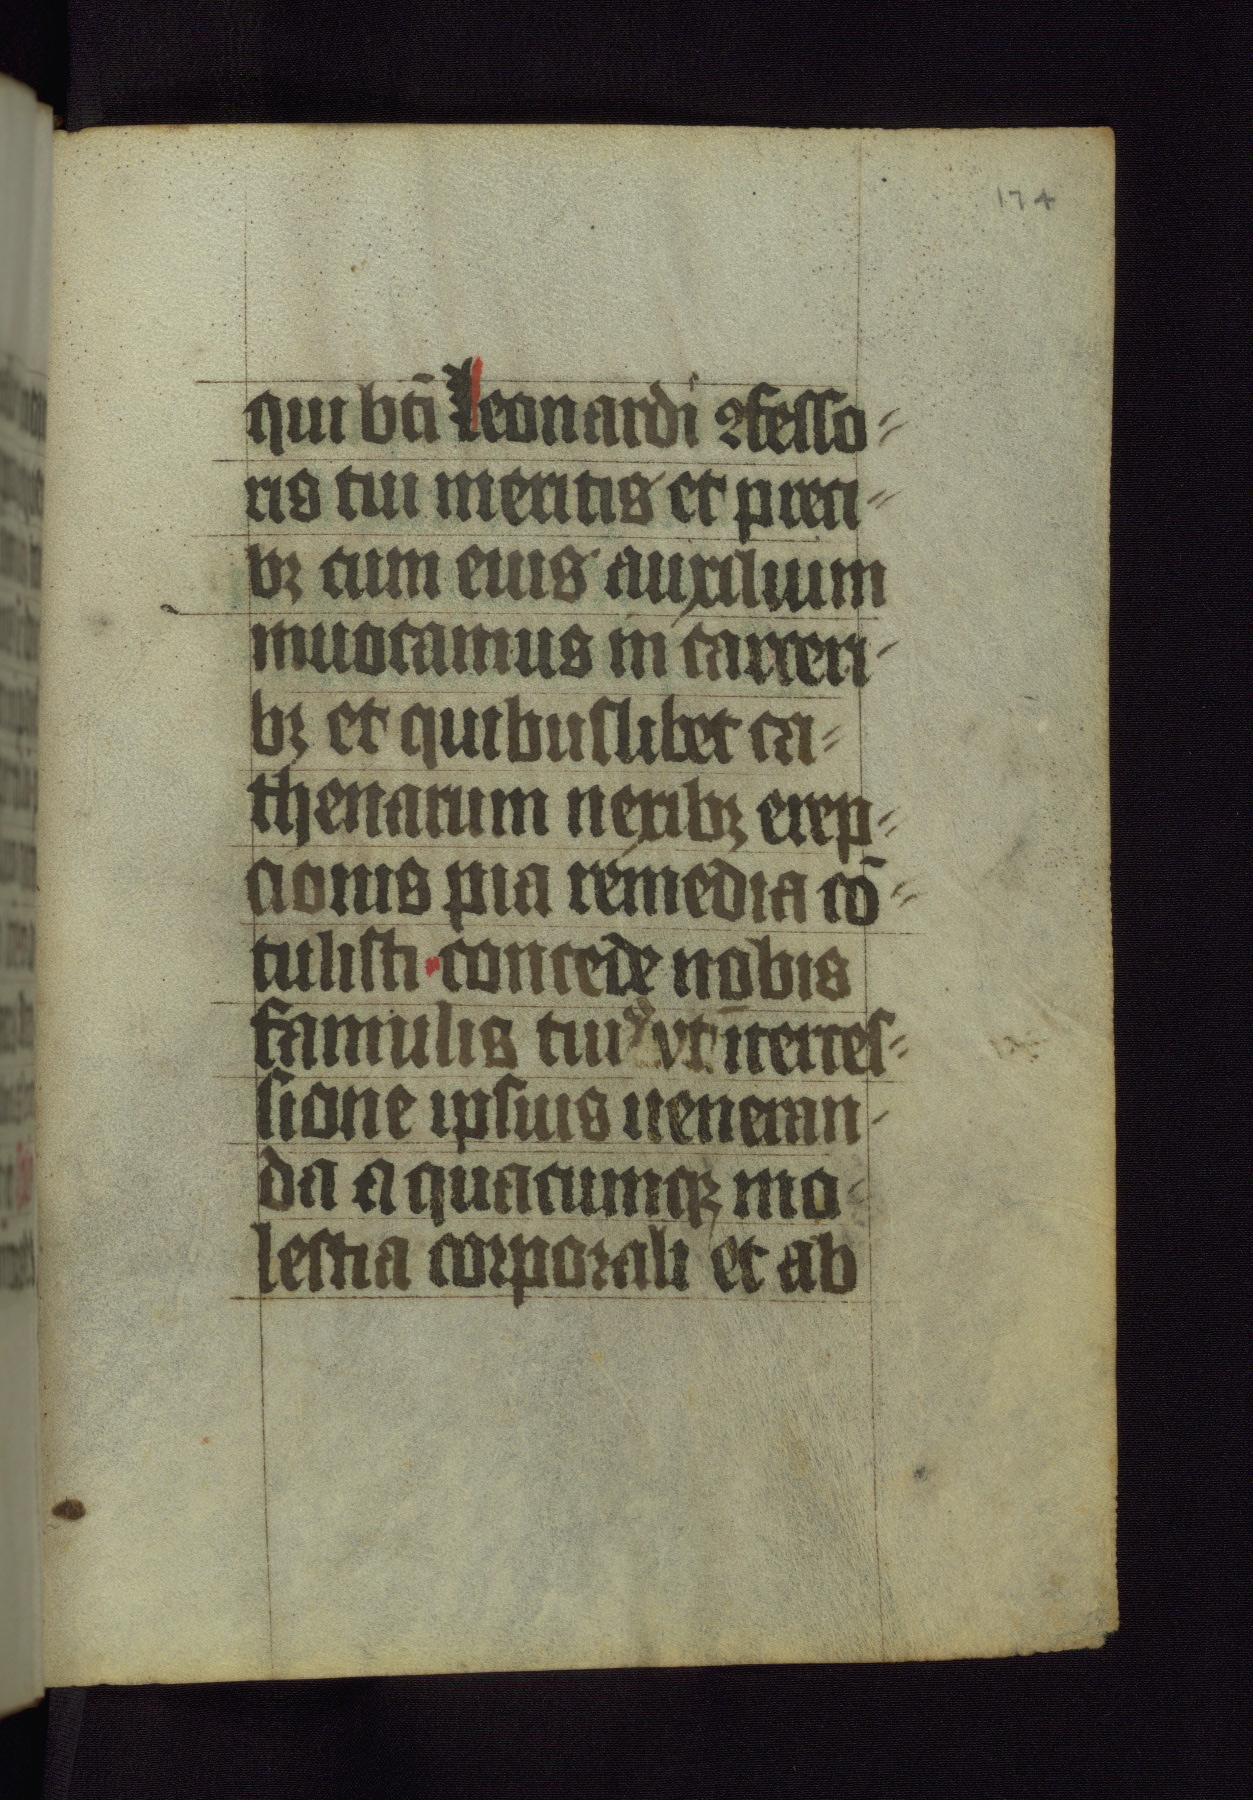 174
qui bti̅ Leonardi ꝯfesso⸗
ris tui meritis et preci⸗
bꝫ cum eius auxilium
inuocamus in carceri-
bꝫ et quibuslibet ca⸗
thenarum nexibꝫ erep⸗
cionis pia remedia co̅⸗
tulisti · concede nobis
famulis tuis vt i̅terces⸗
sione ipsius ueneran-
da a quacumqꝫ mo-
lestia corporali et ab